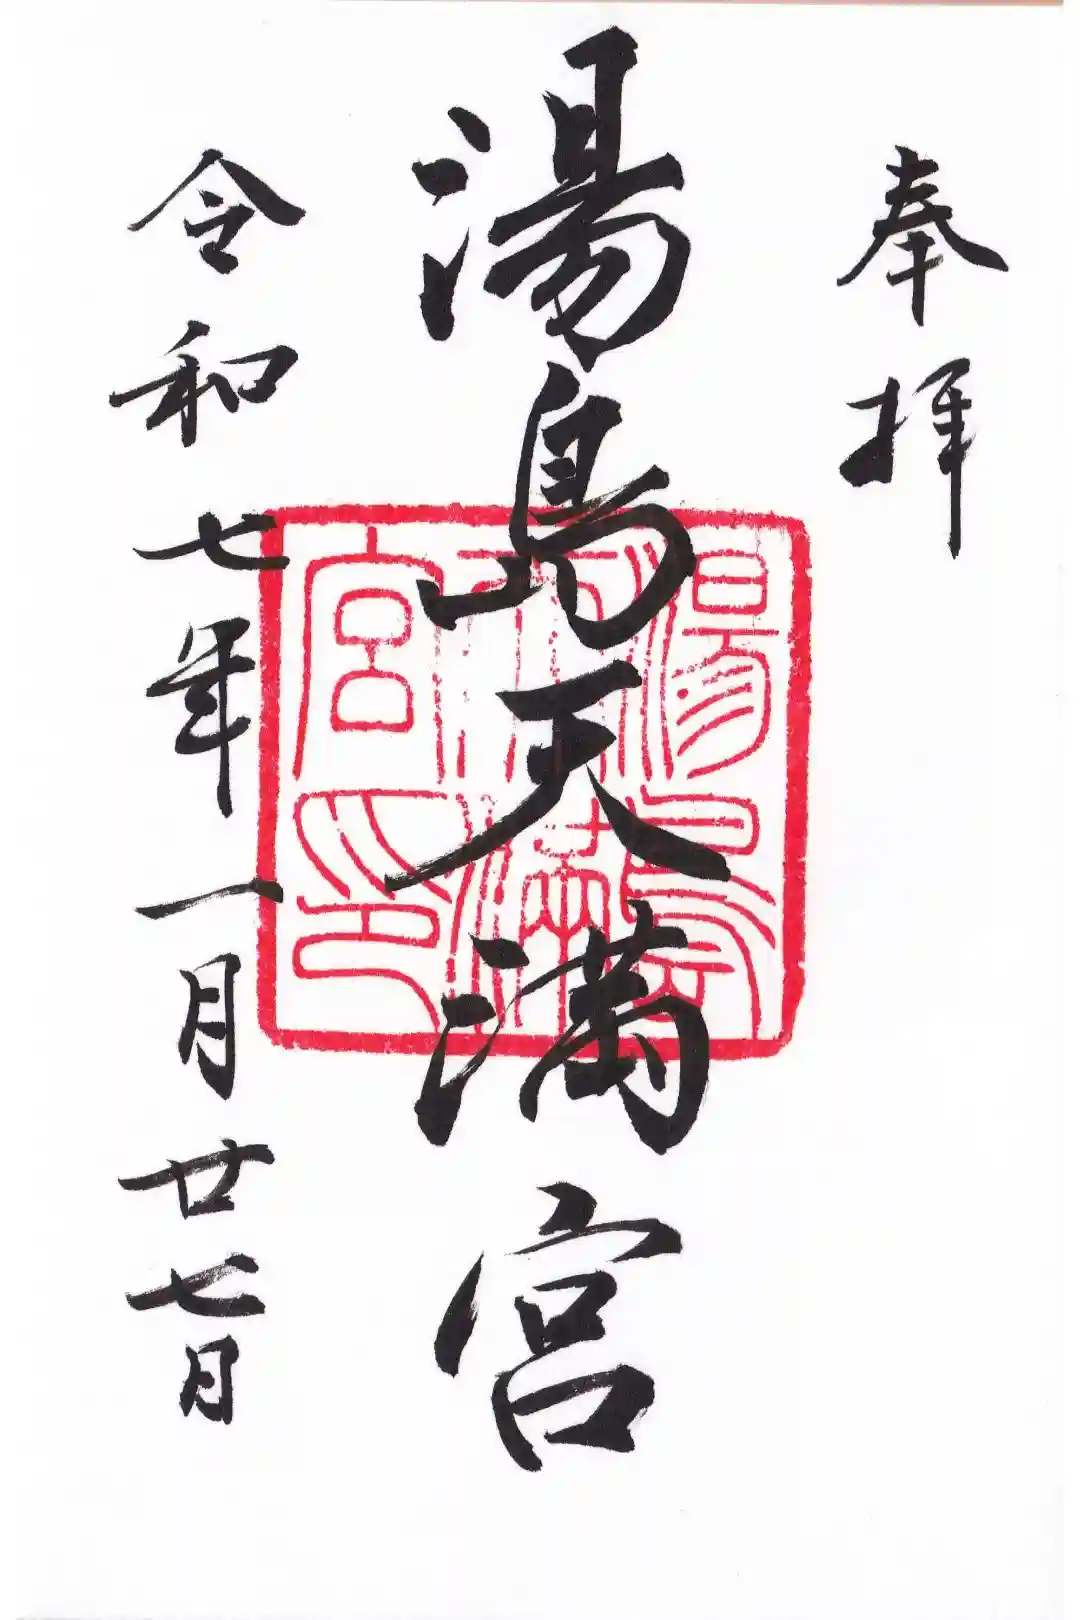 奉拝
湯島天満宮
令和七年一月廿七日
湯島
天満
宮印